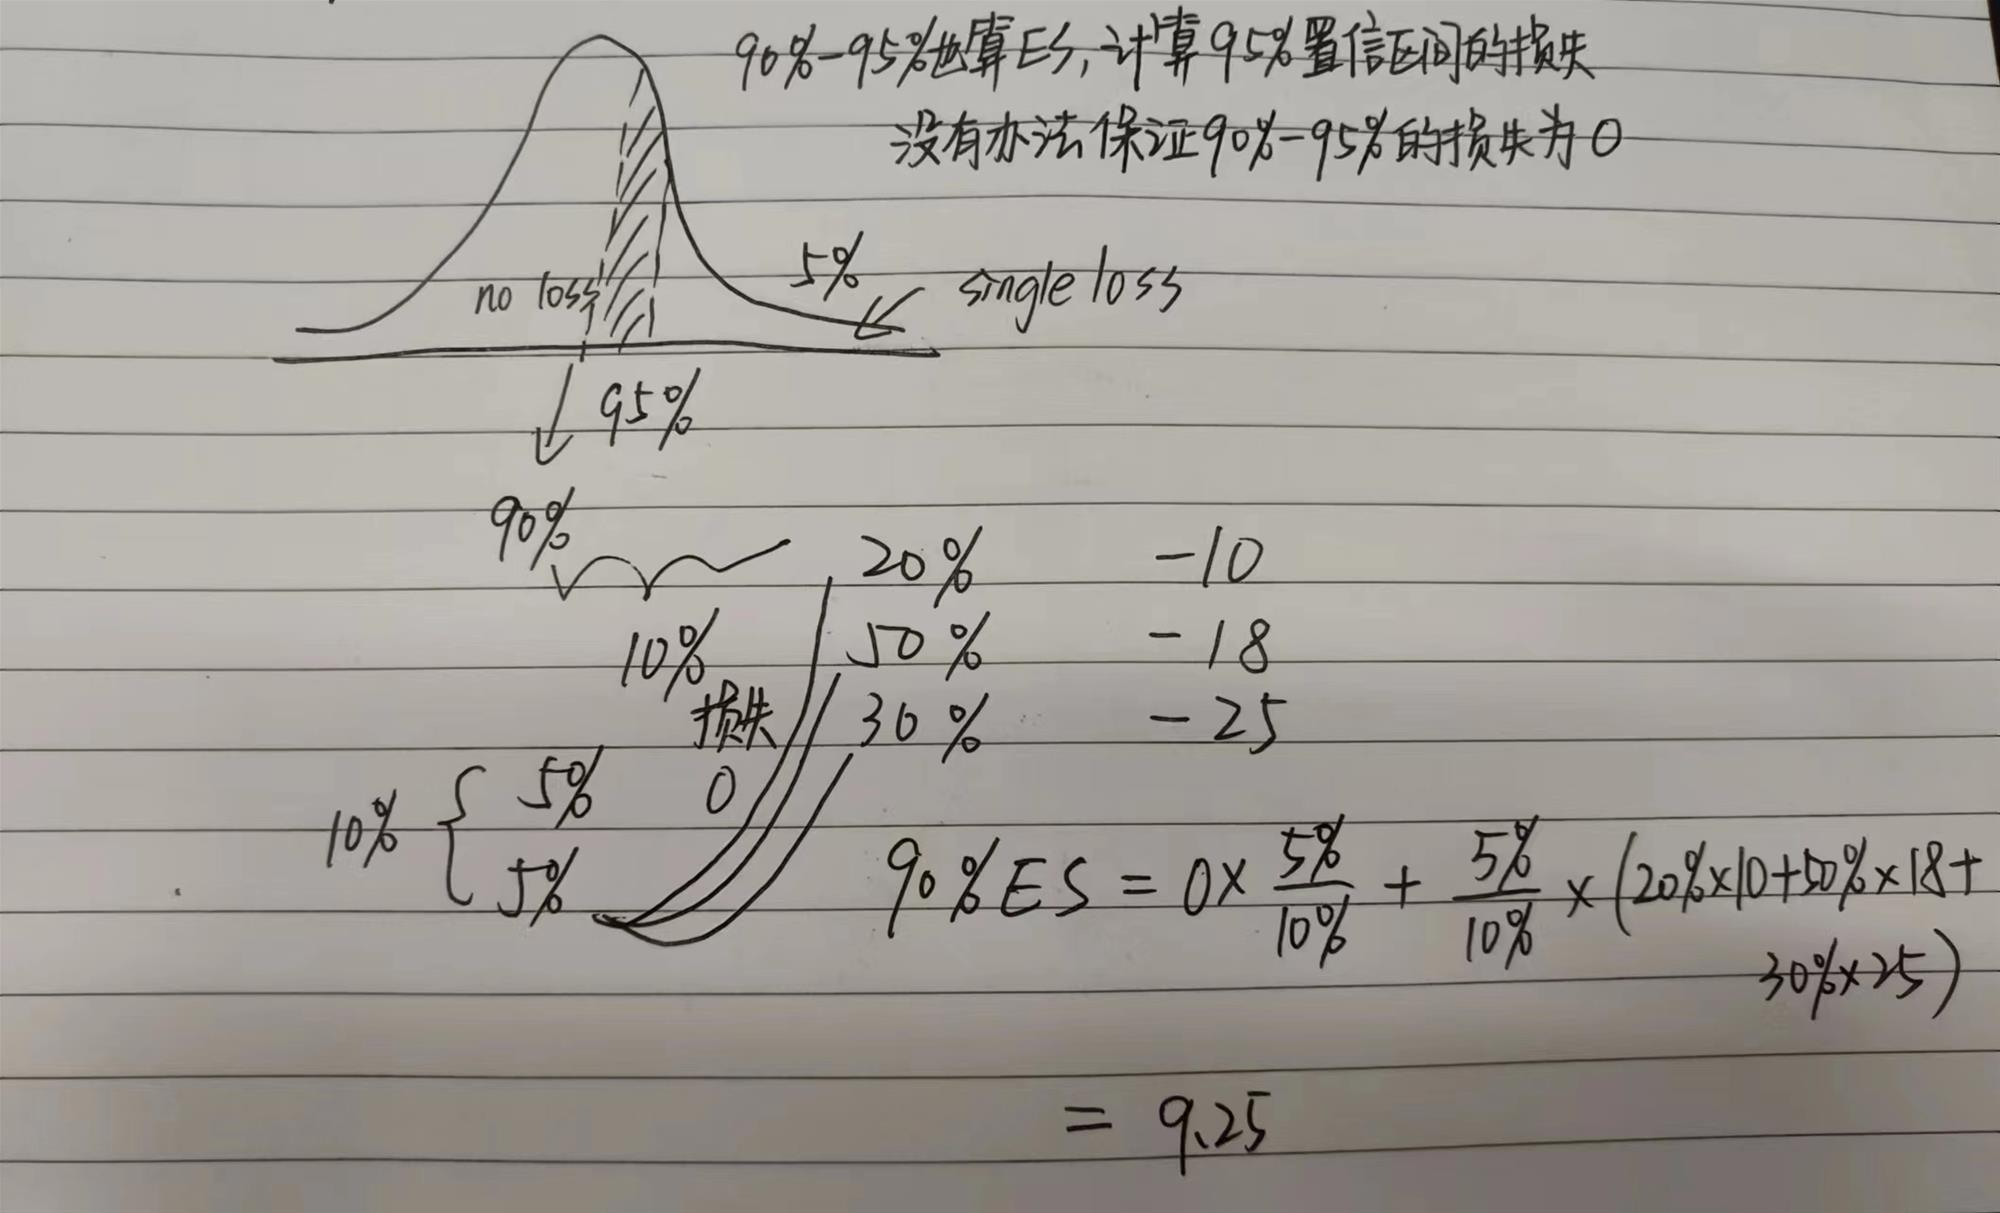 90%-95%也算ES,计算95%置信区间的损失
没有办法保证90%-95%的损失为0
5%
no loss
single loss
95%
90%
20% -10
10% 50% -18
损失 30% -25
10% { 5% 0
5%
90%ES = 0× 5%/10% + 5%/10% × (20%×10+50%×18+
30%×25)
= 9.25